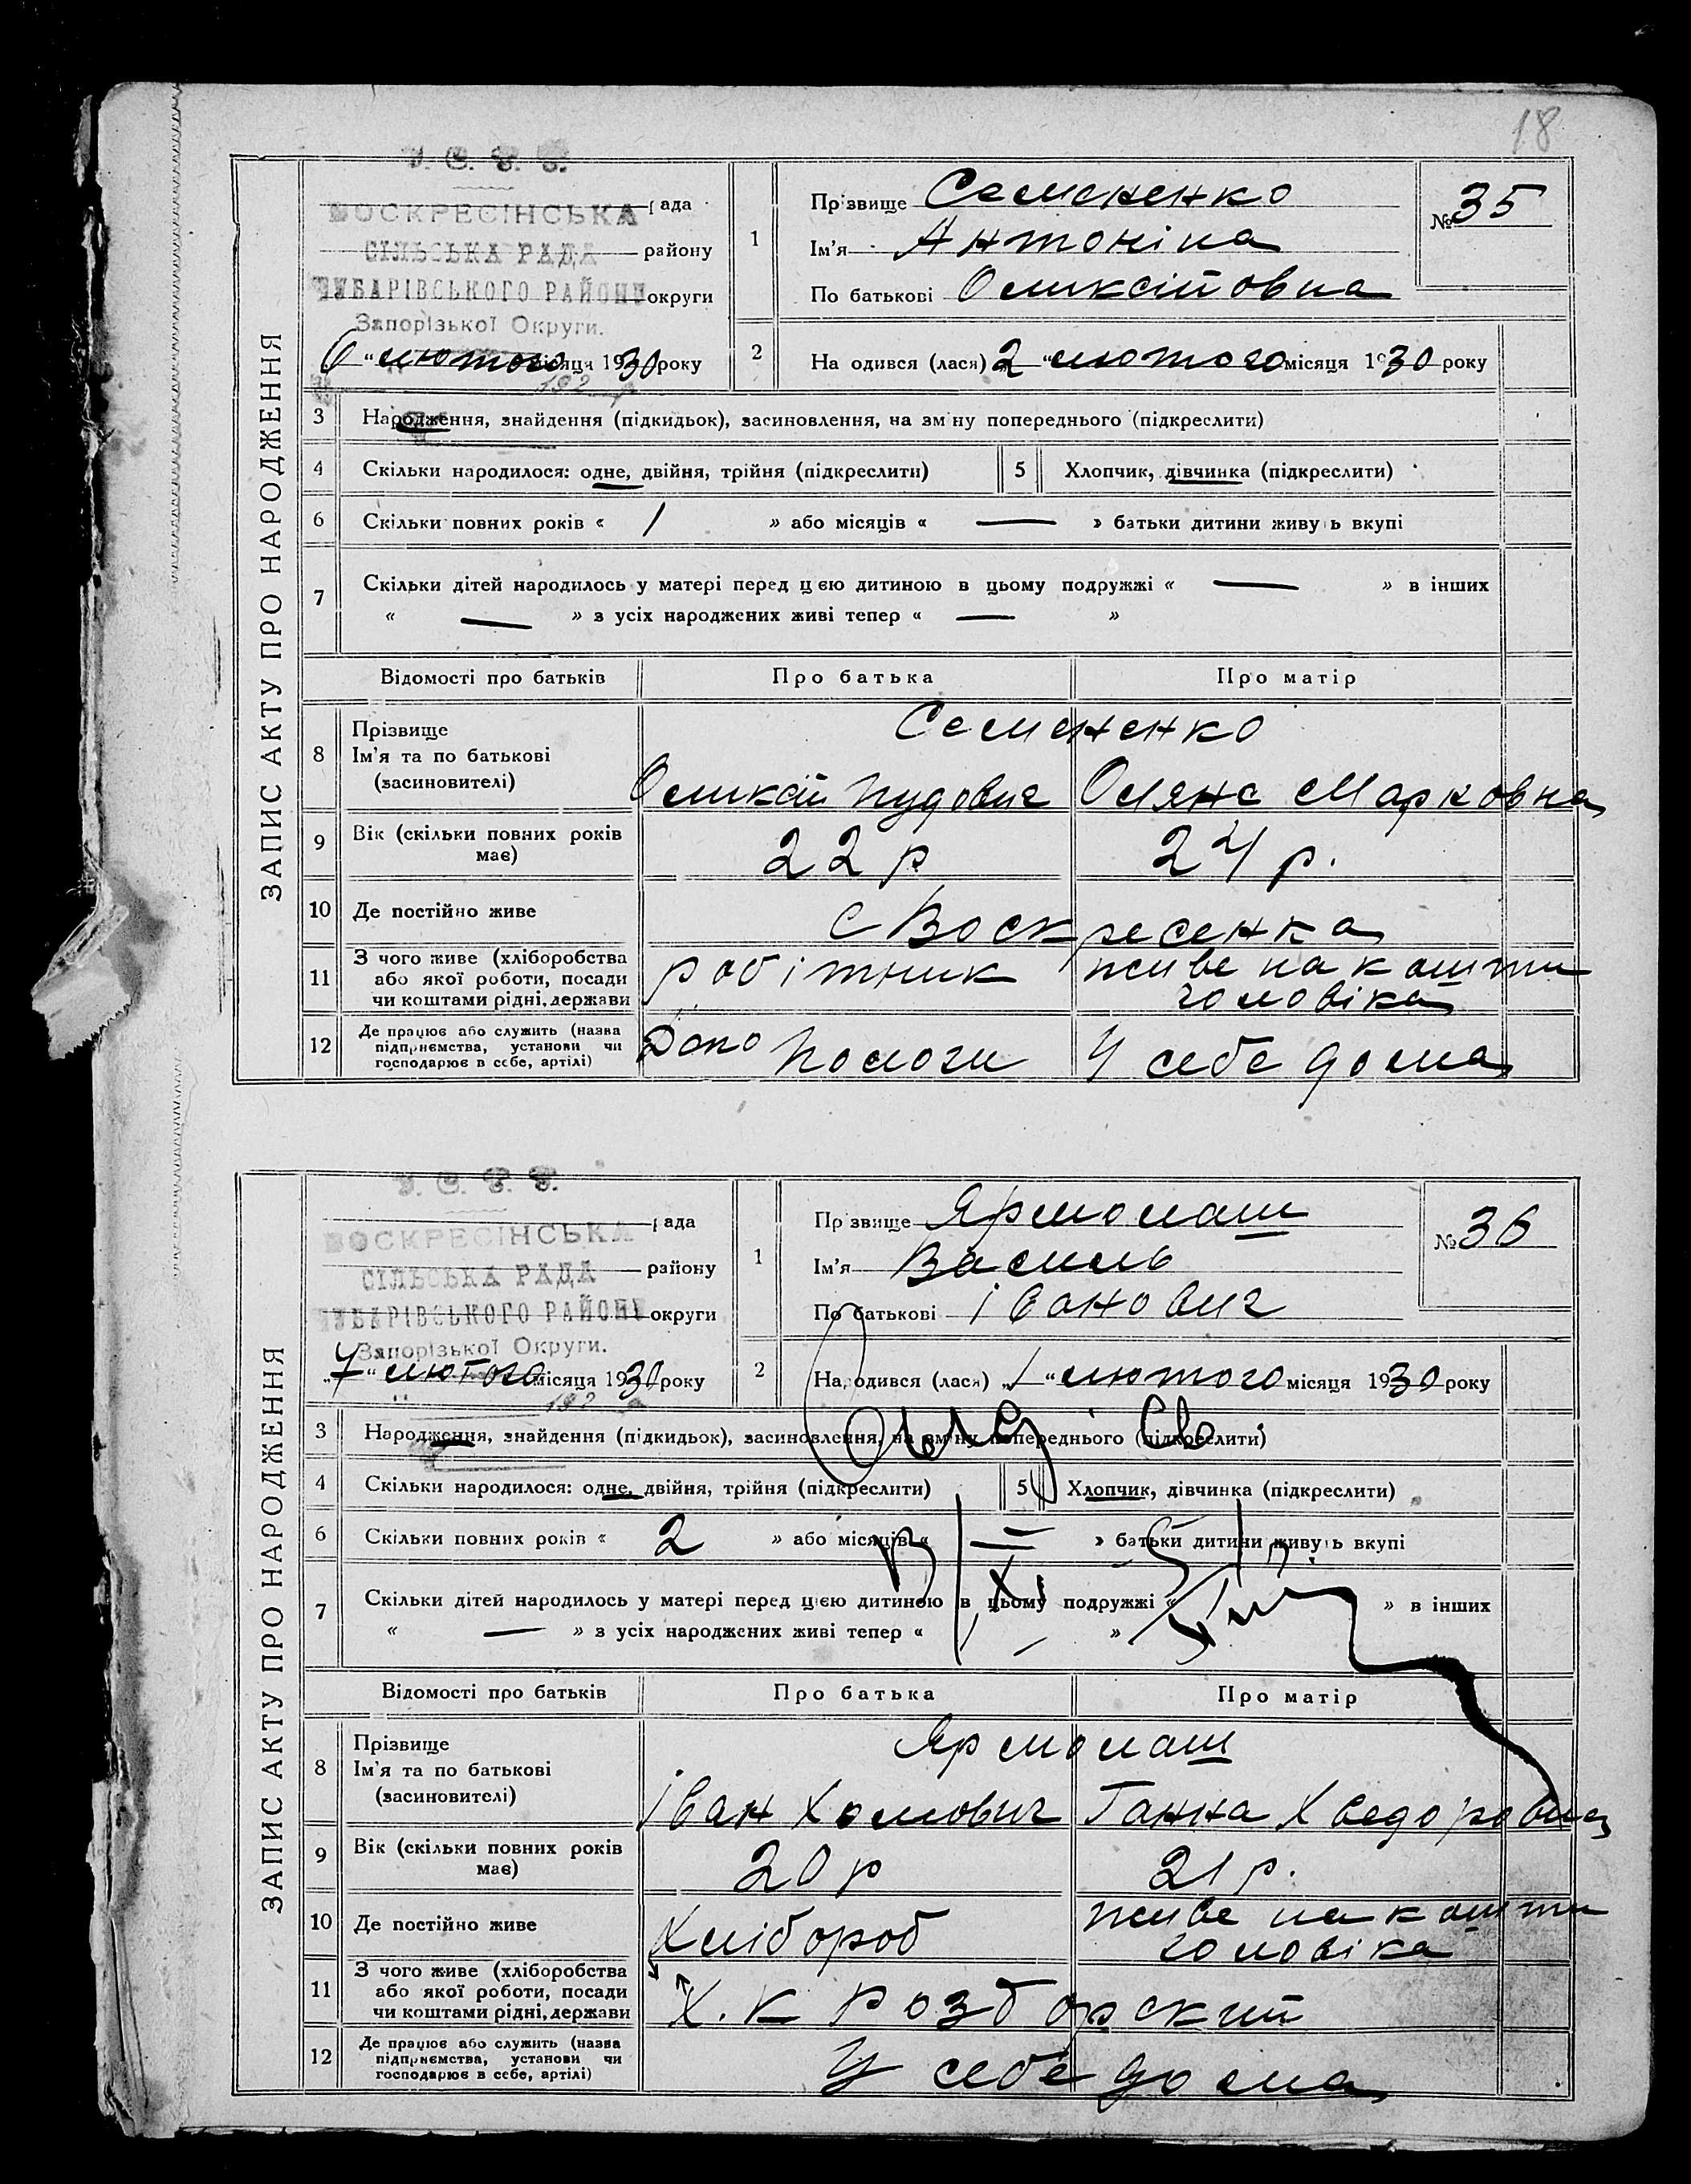 18
ЗАПИС АКТУ ПРО НАРОДЖЕННЯ
У. С. Р. Р.
ВОСКРЕСІНСЬКА рада
СІЛЬСЬКА РАДА району
ЧУБАРІВСЬКОГО РАЙОНУ округи
Запорізької Округи.
6 "лютого місяця 1930 року
192 р
1
Прізвище Семененко
Ім'я Антоніна
По батькові Оликсійовна
№ 35
2 На одився (лася) 2 "лютого місяця 1930 року
3 Народження, знайдення (підкидьок), засиновлення, на зм ну попереднього (підкреслити)
4 Скільки народилося: одне, двійня, трійня (підкреслити) 5 Хлопчик, дівчинка (підкреслити)
6 Скільки повних років « 1 » або місяців « — » батьки дитини живу ь вкупі
7 Скільки дітей народилось у матері перед цією дитиною в цьому подружжі « — » в інших
« — » з усіх народжених живі тепер « — »
Відомості про батьків Про батька Про матір
8 Прізвище
Ім'я та по батькові
(засиновителі)
Семененко
Оликсій Пудович Оляна Марковна
9 Вік (скільки повних років має) 22 р 24 р.
10 Де постійно живе с Воскресенка
11 З чого живе (хліборобства
або якої роботи, посади
чи коштами рідні, держави
робітник живе на кошти
чоловіка
12 Де працює або служить (назва
підприємства, установи чи
господарює в себе, артілі)
Депо Пологи У себе дома
ЗАПИС АКТУ ПРО НАРОДЖЕННЯ
У. С. Р. Р.
ВОСКРЕСІНСЬКА рада
СІЛЬСЬКА РАДА району
ЧУБАРІВСЬКОГО РАЙОНУ округи
Запорізької Округи.
"7" лютого місяця 1930 року
192 р
1
Пр звище Ярмолаш
Ім'я Василь
По батькові Іванович
№ 36
2 На одився (лася) 1 "лютого місяця 1930 року
3 Народження, знайдення (підкидьок), засиновлення, на зм ну попереднього (підкреслити)
4 Скільки народилося: одне, двійня, трійня (підкреслити) 5 Хлопчик, дівчинка (підкреслити)
6 Скільки повних років « 2 » або місяців « — » батьки дитини живу ь вкупі
7 Скільки дітей народилось у матері перед цією дитиною в цьому подружжі « » в інших
« — » з усіх народжених живі тепер « — »
Відомості про батьків Про батька Про матір
8 Прізвище
Ім'я та по батькові
(засиновителі)
Ярмолаш
Іван Хомович Ганна Хведоровна
9 Вік (скільки повних років має) 20 р 21 р.
10 Де постійно живе
Хлібороб живе на кошти
чоловіка
11 З чого живе (хліборобства
або якої роботи, посади
чи коштами рідні, держави
Х. к Розборский
12 Де працює або служить (назва
підприємства, установи чи
господарює в себе, артілі)
У себе дома